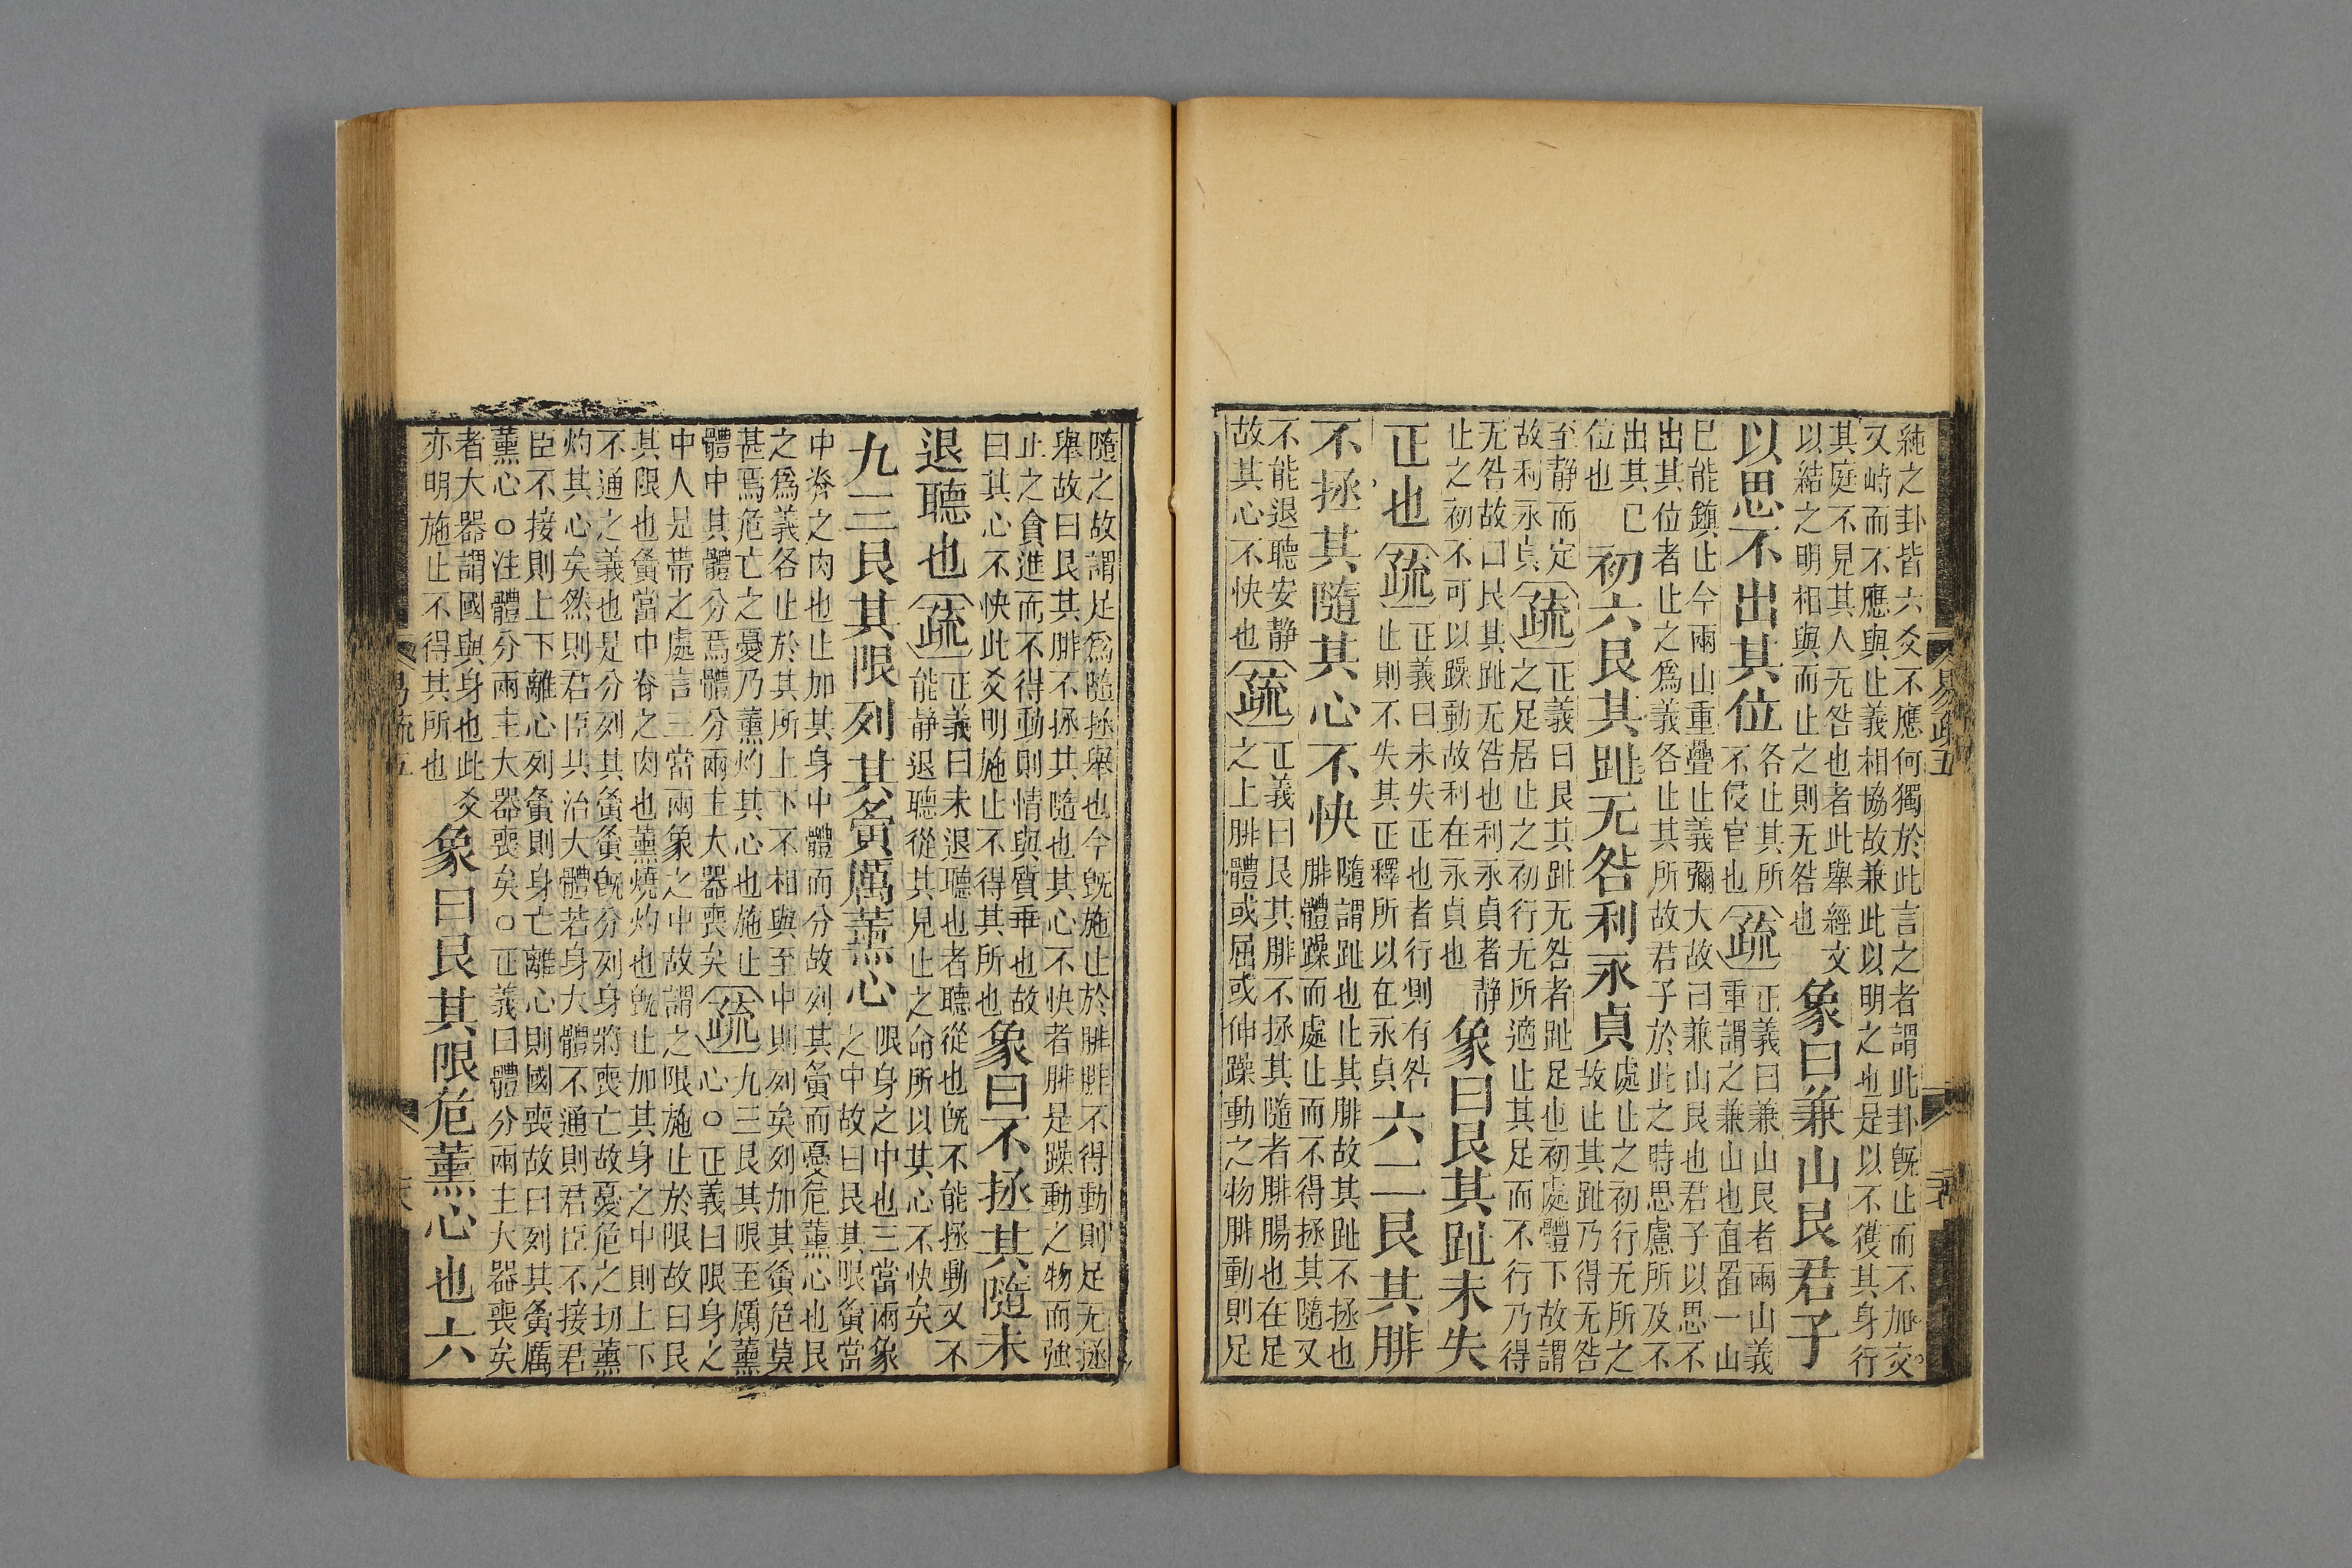 純之卦皆六爻不應何獨於此言之者謂此卦旣止而不加交
又峙而不應與止義相協故兼此以明之也是以不獲其身行
其庭不見其人无咎也者此舉經文
以結之明相與而止之則无咎也
象曰兼山艮君子
以思不出其位
各止其所
不侵官也
疏
正義曰兼山艮者兩山義
重謂之兼山也直置一山
已能鎮止今兩山重疊止義彌大故曰兼山艮也君子以思不
出其位者止之爲義各止其所故君子於此之時思慮所及不
出其已
位也
初六艮其趾无咎利永貞
處止之初行无所之
故止其趾乃得无咎
至静而定
故利永貞
疏
正義曰艮其趾无咎者趾足也初處體下故謂
之足居止之初行无所適止其足而不行乃得
无咎故曰艮其趾无咎也利永貞者静
止之初不可以躁動故利在永貞也
象曰艮其趾未失
正也
疏
正義曰未失正也者行則有咎
止則不失其正釋所以在永貞
六二艮其腓
不拯其隨其心不快
隨謂趾也止其腓故其趾不拯也
腓體躁而處止而不得拯其隨又
不能退聽安静
故其心不快也
疏
正義曰艮其腓不拯其隨者腓腸也在足
之上腓體或屈或伸躁動之物腓動則足
隨之故謂足爲隨拯舉也今旣施止於腓腓不得動則足无拯
舉故曰艮其腓不拯其隨也其心不快者腓是躁動之物而強
止之貪進而不得動則情與質乖也故
曰其心不快此爻明施止不得其所也
象曰不拯其隨未
退聽也
疏
正義曰未退聽也者聽從也旣不能拯動又不
能静退聽從其見止之命所以其心不快矣
九三艮其限列其夤厲薰心
限身之中也三當兩象
之中故曰艮其限夤當
中脊之肉也止加其身中體而分故列其夤而憂危薰心也艮
之爲義各止於其所上下不相與至中則列矣列加其夤危莫
甚焉危亡之憂乃薰灼其心也施止
體中其體分焉體分兩主大器喪矣
疏
九三艮其限至厲薰
心○正義曰限身之
中人是帶之處言三當兩象之中故謂之限施止於限故曰艮
其限也夤當中脊之肉也薰燒灼也旣止加其身之中則上下
不通之義也是分列其夤夤旣分列身將喪亡故憂危之切薰
灼其心矣然則君臣共治大體若身大體不通則君臣不接君
臣不接則上下離心列夤則身亡離心則國喪故曰列其夤厲
薰心○注體分兩主大器喪矣○正義曰體分兩主大器喪矣
者大器謂國與身也此爻
亦明施止不得其所也
象曰艮其限危薰心也六
易疏五